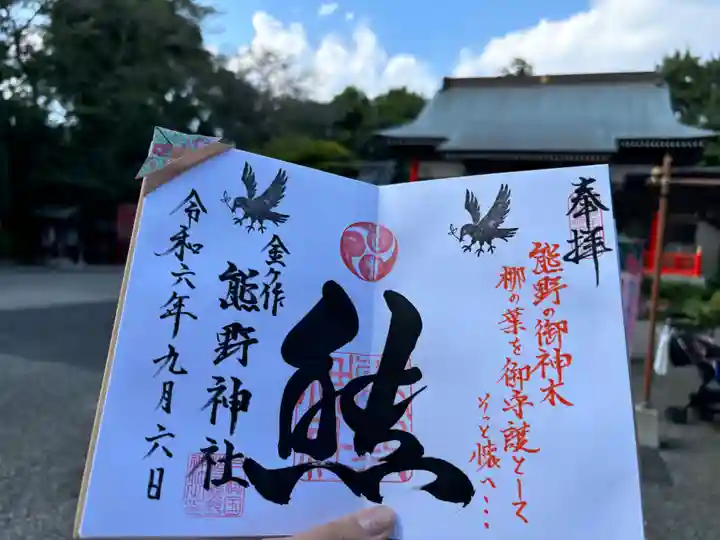 奉拝
熊野の御神木
梛の葉を御守護として
そっと懐へ…
熊
金ヶ作
熊野神社
令和六年九月六日